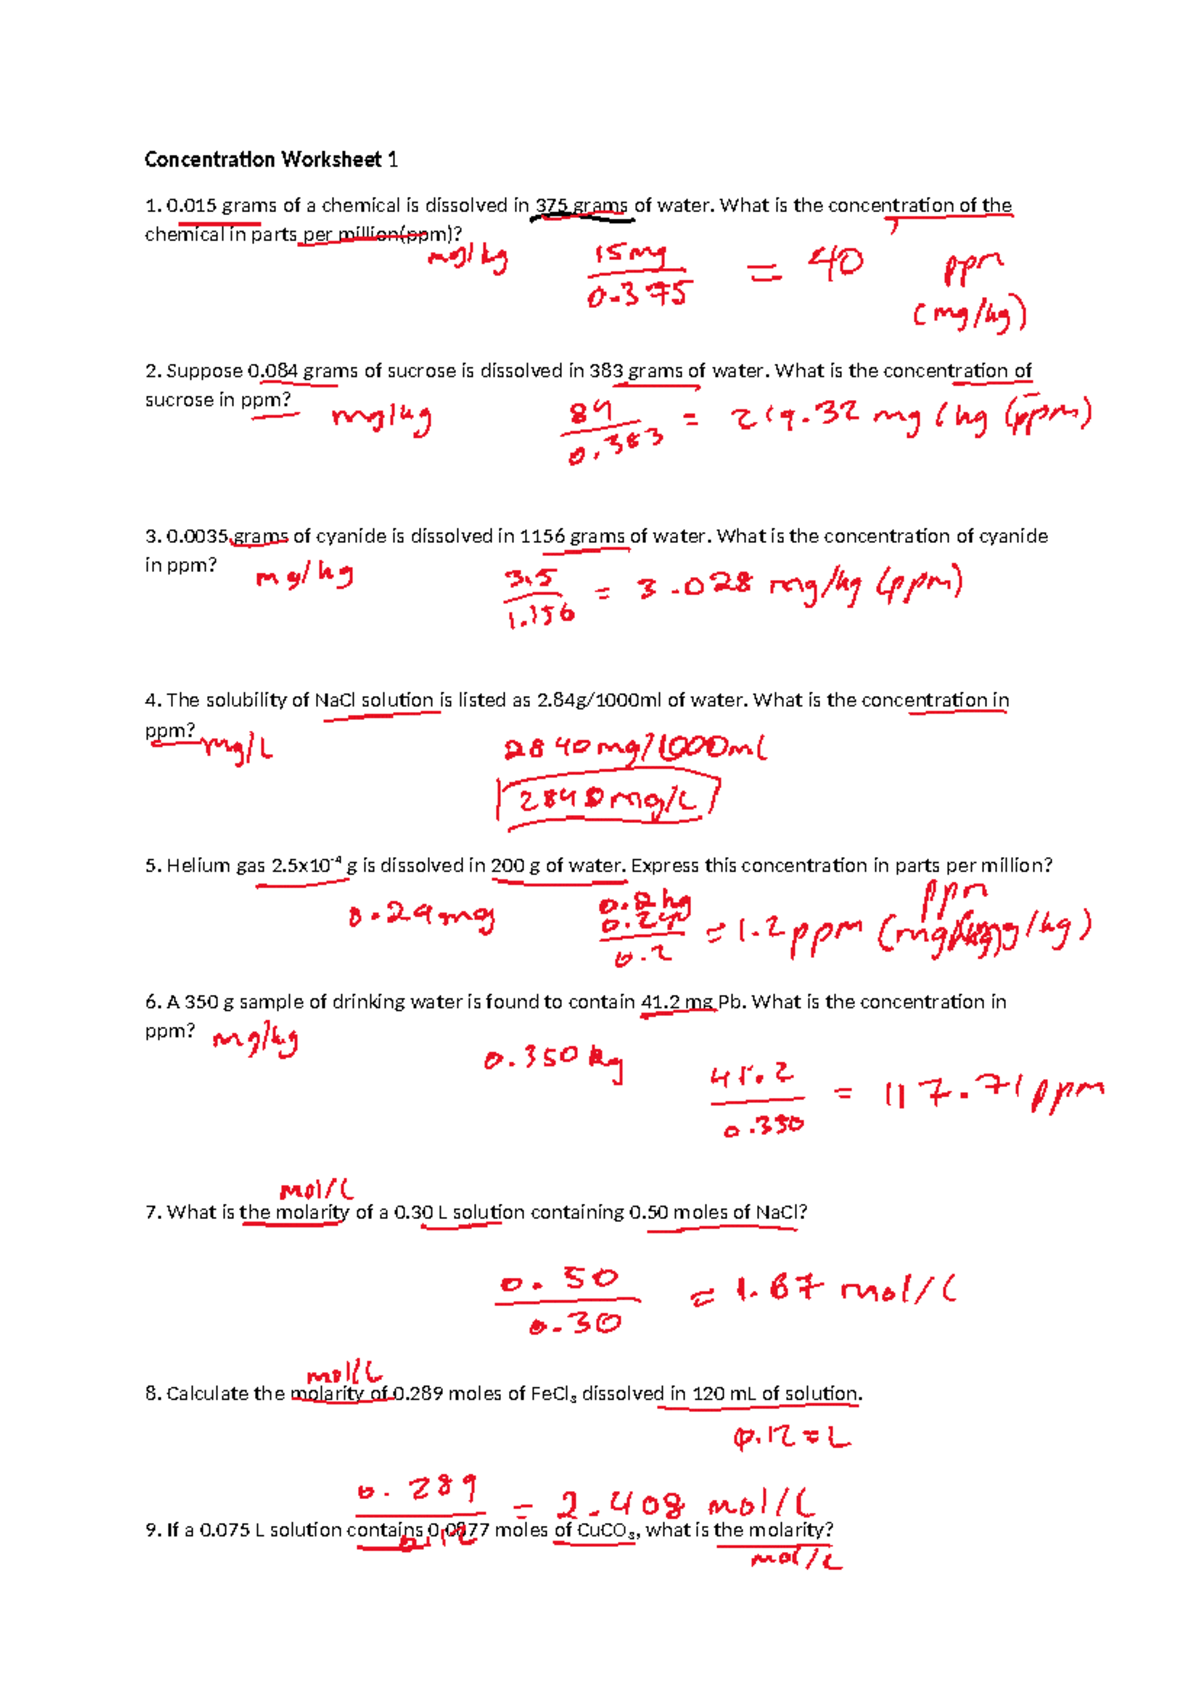 Concentration Worksheet 1
1. 0.015 grams of a chemical is dissolved in 375 grams of water. What is the concentration of the
chemical in parts per million(ppm)?
mg/kg
15mg
0.375
= 40 ppm
(mg/kg)
2. Suppose 0.084 grams of sucrose is dissolved in 383 grams of water. What is the concentration of
sucrose in ppm?
mg/kg
84
0.383
= 219.32 mg/kg (ppm)
3. 0.0035 grams of cyanide is dissolved in 1156 grams of water. What is the concentration of cyanide
in ppm?
mg/kg
3.5
1.156
= 3.028 mg/kg (ppm)
4. The solubility of NaCl solution is listed as 2.84g/1000ml of water. What is the concentration in
ppm?
mg/L
2840mg/1000ml
2840mg/L
5. Helium gas 2.5x10⁻⁴ g is dissolved in 200 g of water. Express this concentration in parts per million?
ppm
0.24mg
0.2kg
0.24
0.2
= 1.2 ppm (mg/kg)
6. A 350 g sample of drinking water is found to contain 41.2 mg Pb. What is the concentration in
ppm?
mg/kg
0.350kg
41.2
0.350
= 117.71 ppm
mol/L
7. What is the molarity of a 0.30 L solution containing 0.50 moles of NaCl?
0.50
0.30
= 1.67 mol/L
mol/L
8. Calculate the molarity of 0.289 moles of FeCl₃ dissolved in 120 mL of solution.
0.12=L
0.289
0.12
= 2.408 mol/L
9. If a 0.075 L solution contains 0.0877 moles of CuCO₃, what is the molarity?
mol/L